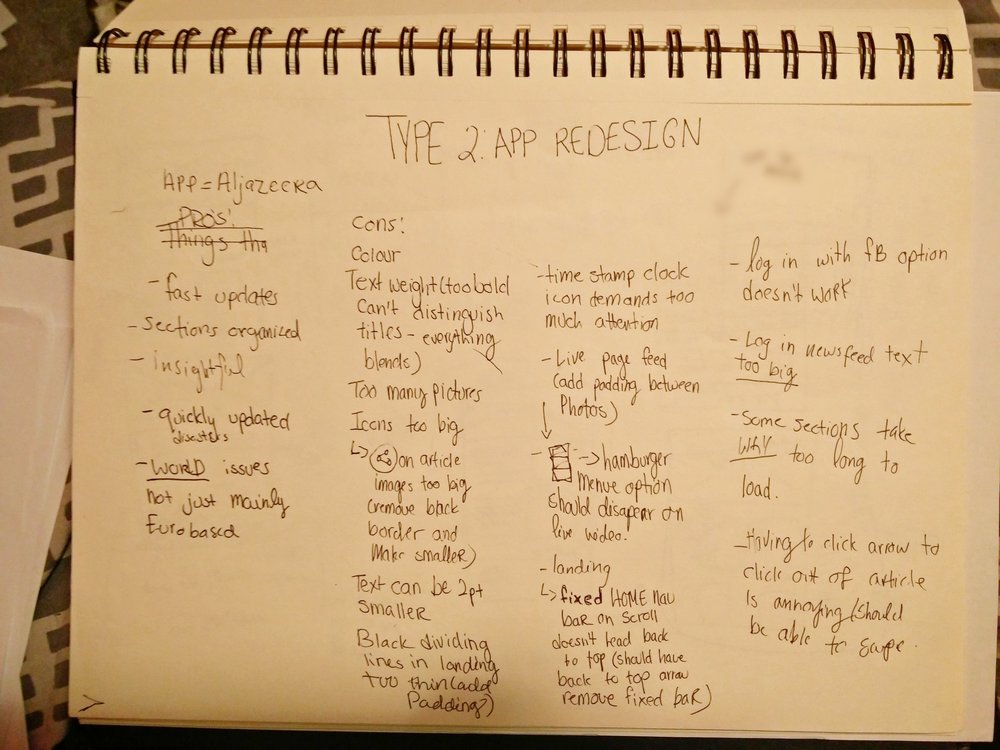 TYPE 2: APP REDESIGN
APP = Aljazeera
PROS!
Things tha
- fast updates
- Sections organized
- insightful
- quickly updated
disasters
- WORLD issues
not just mainly
Euro based
Cons:
Colour
Text weight (too bold
Can't distinguish
titles - everything
blends)
Too many pictures
Icons too big
↳ on article
images too big
(remove black
border and
Make smaller)
Text can be 2pt
Smaller
Black dividing
lines in landing
too thin (add
Padding)
- time stamp clock
icon demands too
much attention
- Live page feed
(add padding between
Photos)
- -> hamburger
Menue option
should disapear on
live video!
- landing
↳ fixed HOME nav
bar on scroll
doesn't lead back
to top (should have
back to top arrow
remove fixed bar)
- log in with FB option
doesn't work
- Log in newsfeed text
too big
- Some sections take
WAY too long to
load.
- Having to click arrow to
click out of article
Is annoying (should
be able to swipe.